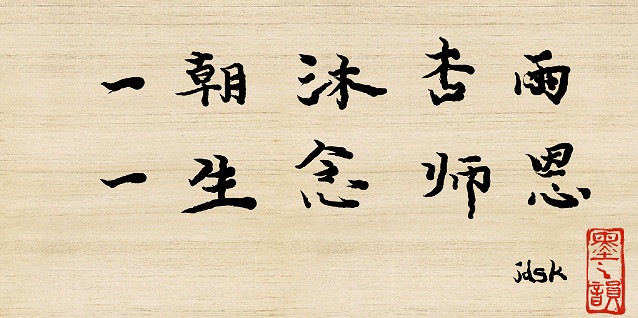 一朝沐杏雨
一生念师恩
jdsk
墨之韻